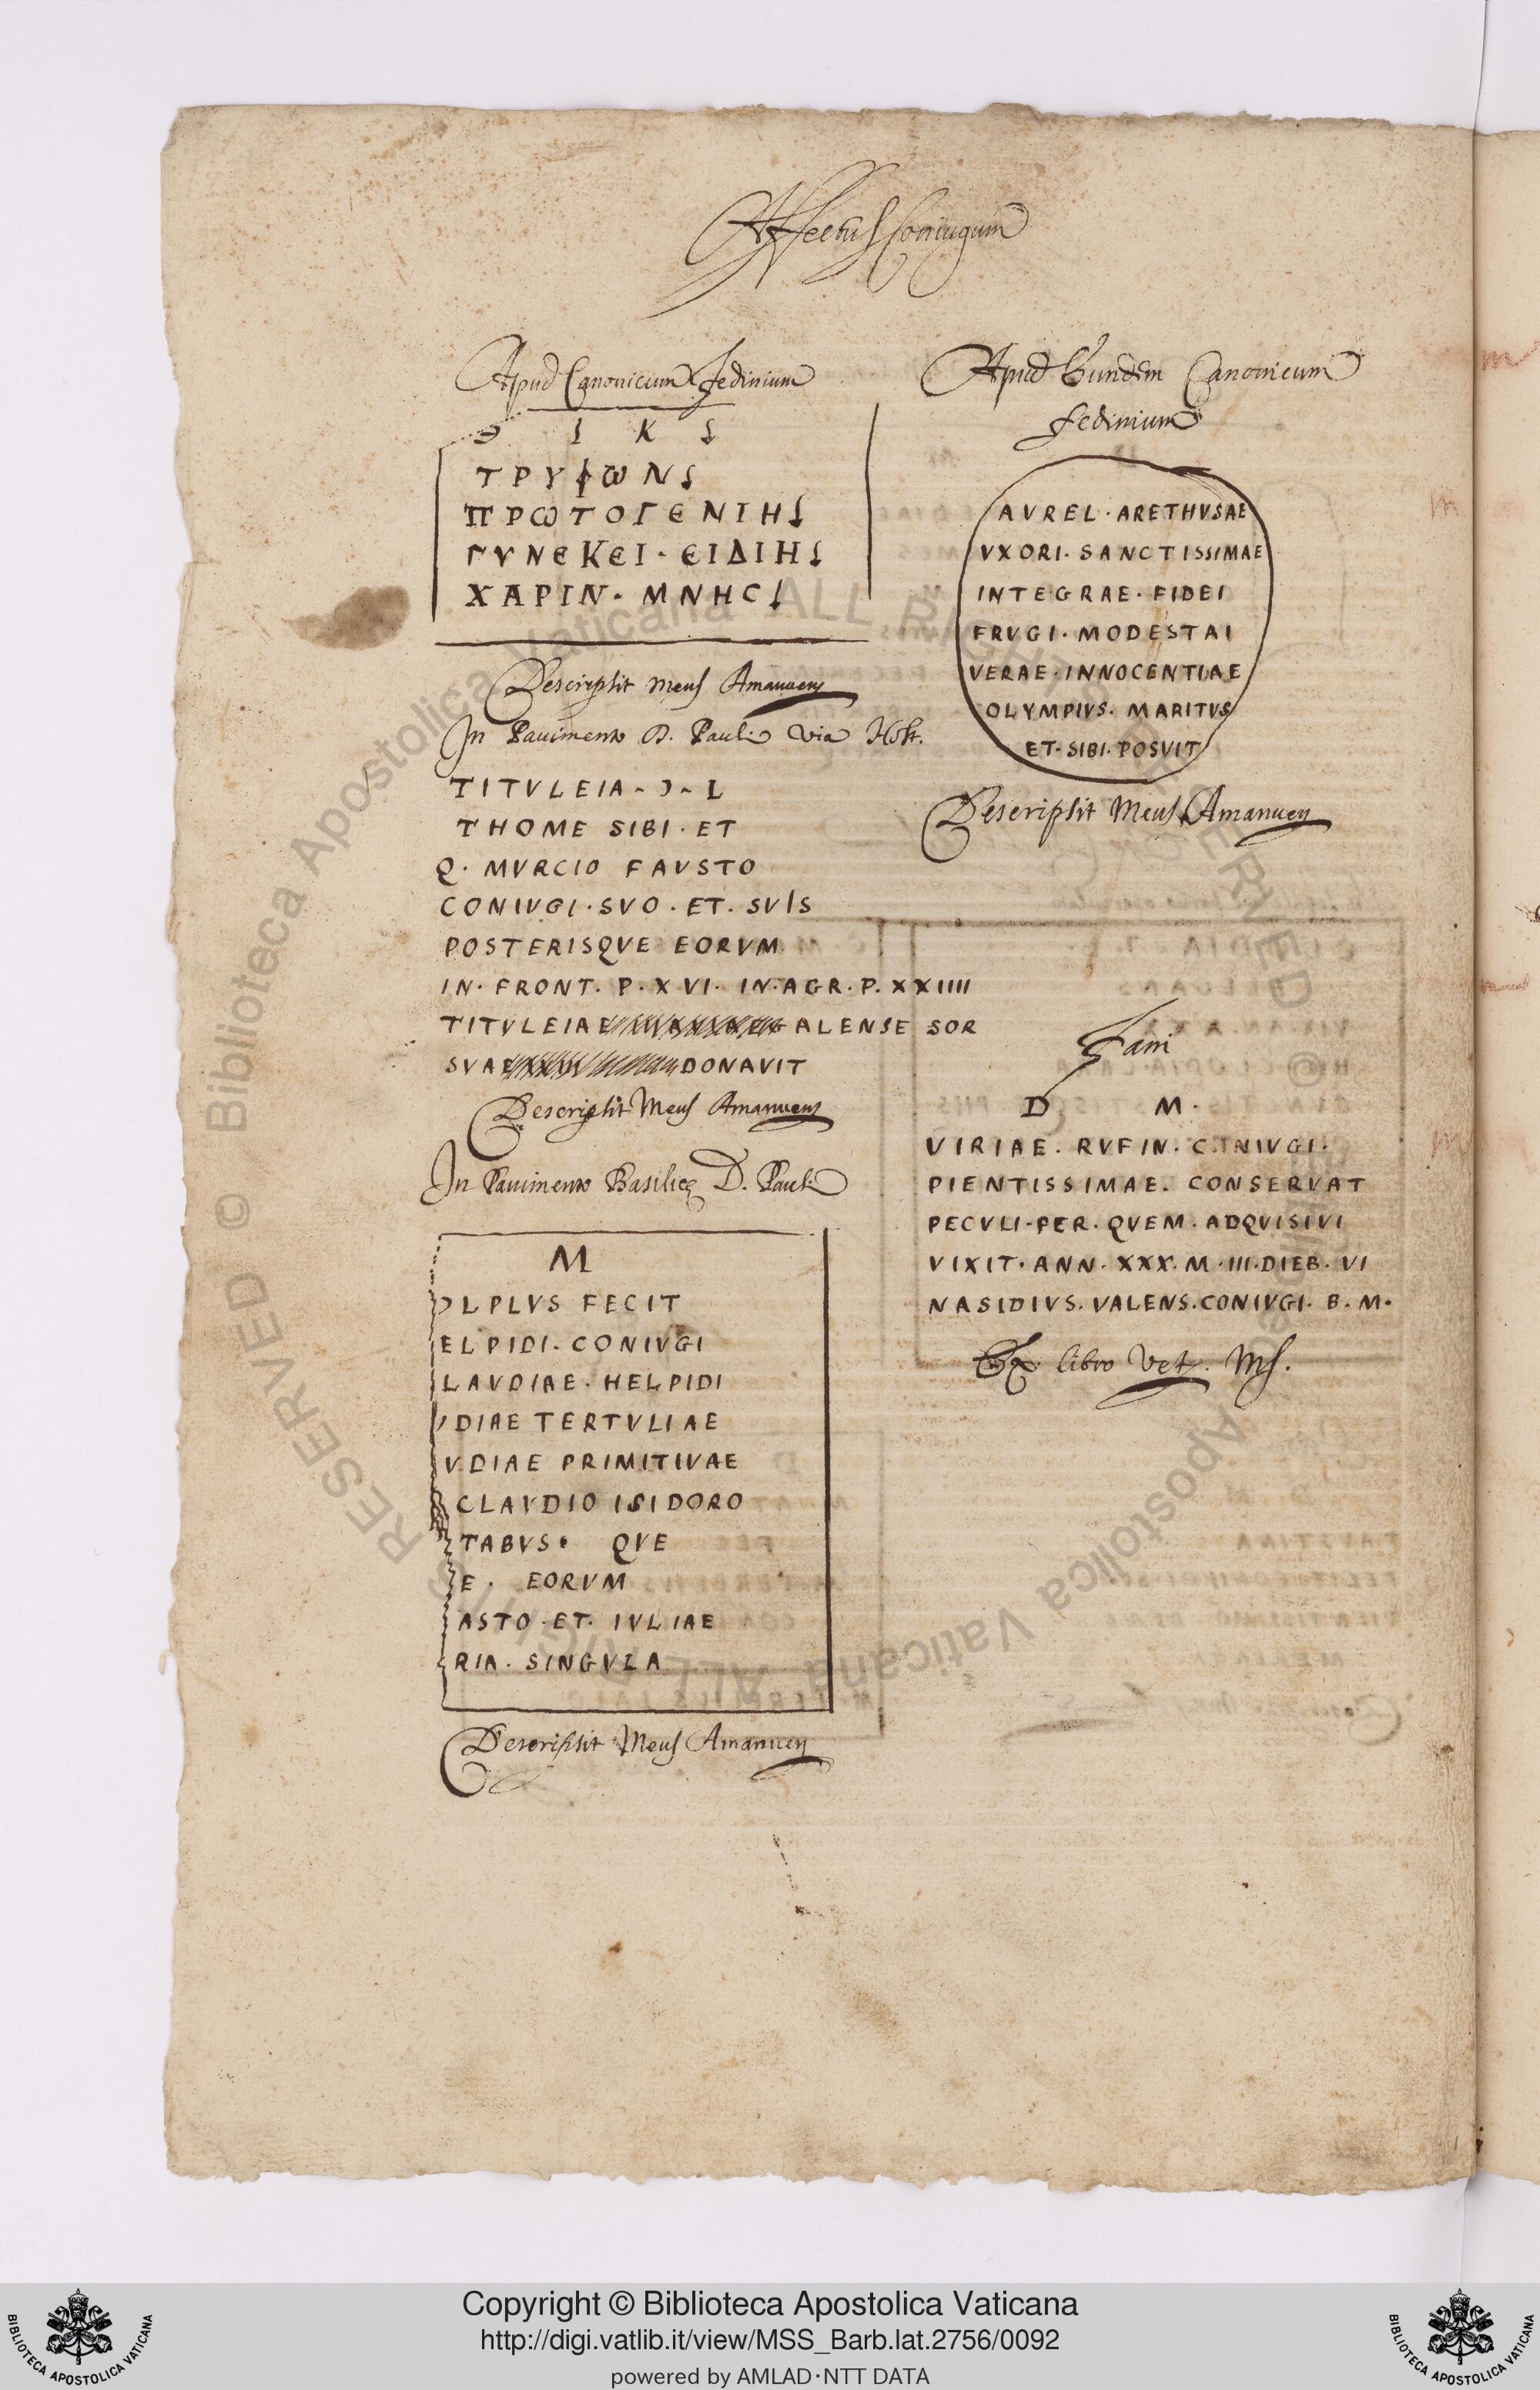 Affectus Coniugum
Apud Canonicum Fedinium
Ͽ Ϛ Κ Ϛ
ΤΡΥϕωΝϚ
ΠΡωΤΟΓЄΝΙΗϚ
ΓΥΝЄΚЄΙ · ЄΙΔΙΗϚ
ΧΑΡΙΝ · ΜΝΗCϚ
Descripsit meus Amanuens
In Pauimento D. Pauli via Host.
TITVLEIA · Ɔ · L
THOME SIBI · ET
Q · MVRCIO FAVSTO
CONIVGI · SVO · ET · SVIS
POSTERISQVE EORVM
IN · FRONT · P · XVI · IN · AGR · P · XXIIII
TITVLEIAE ALENSE SOR
SVAE DONAVIT
Descripsit Meus Amanuens
In Pauimento Basilicę D. Pauli
M
LPLVS FECIT
ELPIDI · CONIVGI
LAVDIAE · HELPIDI
DIAE TERTVLIAE
VDIAE PRIMITIVAE
CLAVDIO ISIDORO
TABVS · QVE
E · EORVM
ASTO · ET · IVLIAE
RIA · SINGVLA
Descripsit Meus Amanuen
Apud Eundem Canonicum
Fedinium
AVREL · ARETHVSAE
VXORI · SANCTISSIMAE
INTEGRAE · FIDEI
FRVGI · MODESTAI
VERAE · INNOCENTIAE
OLYMPIVS · MARITVS
ET · SIBI · POSVIT
Descripsit Meus Amanuen
Fani
D M ·
VIRIAE · RVFIN · CINIVGI ·
PIENTISSIMAE · CONSERVAT
PECVLI · PER · QVEM · ADQVISIVI
VIXIT · ANN · XXX · M · III · DIEB · VI
NASIDIVS · VALENS · CONIVGI · B · M ·
Ex libro Vet. Ms.
Copyright © Biblioteca Apostolica Vaticana
http://digi.vatlib.it/view/MSS_Barb.lat.2756/0092
powered by AMLAD·NTT DATA
BIBLIOTECA APOSTOLICA VATICANA
BIBLIOTECA APOSTOLICA VATICANA
© Biblioteca Apostolica Vaticana ALL RIGHTS RESERVED